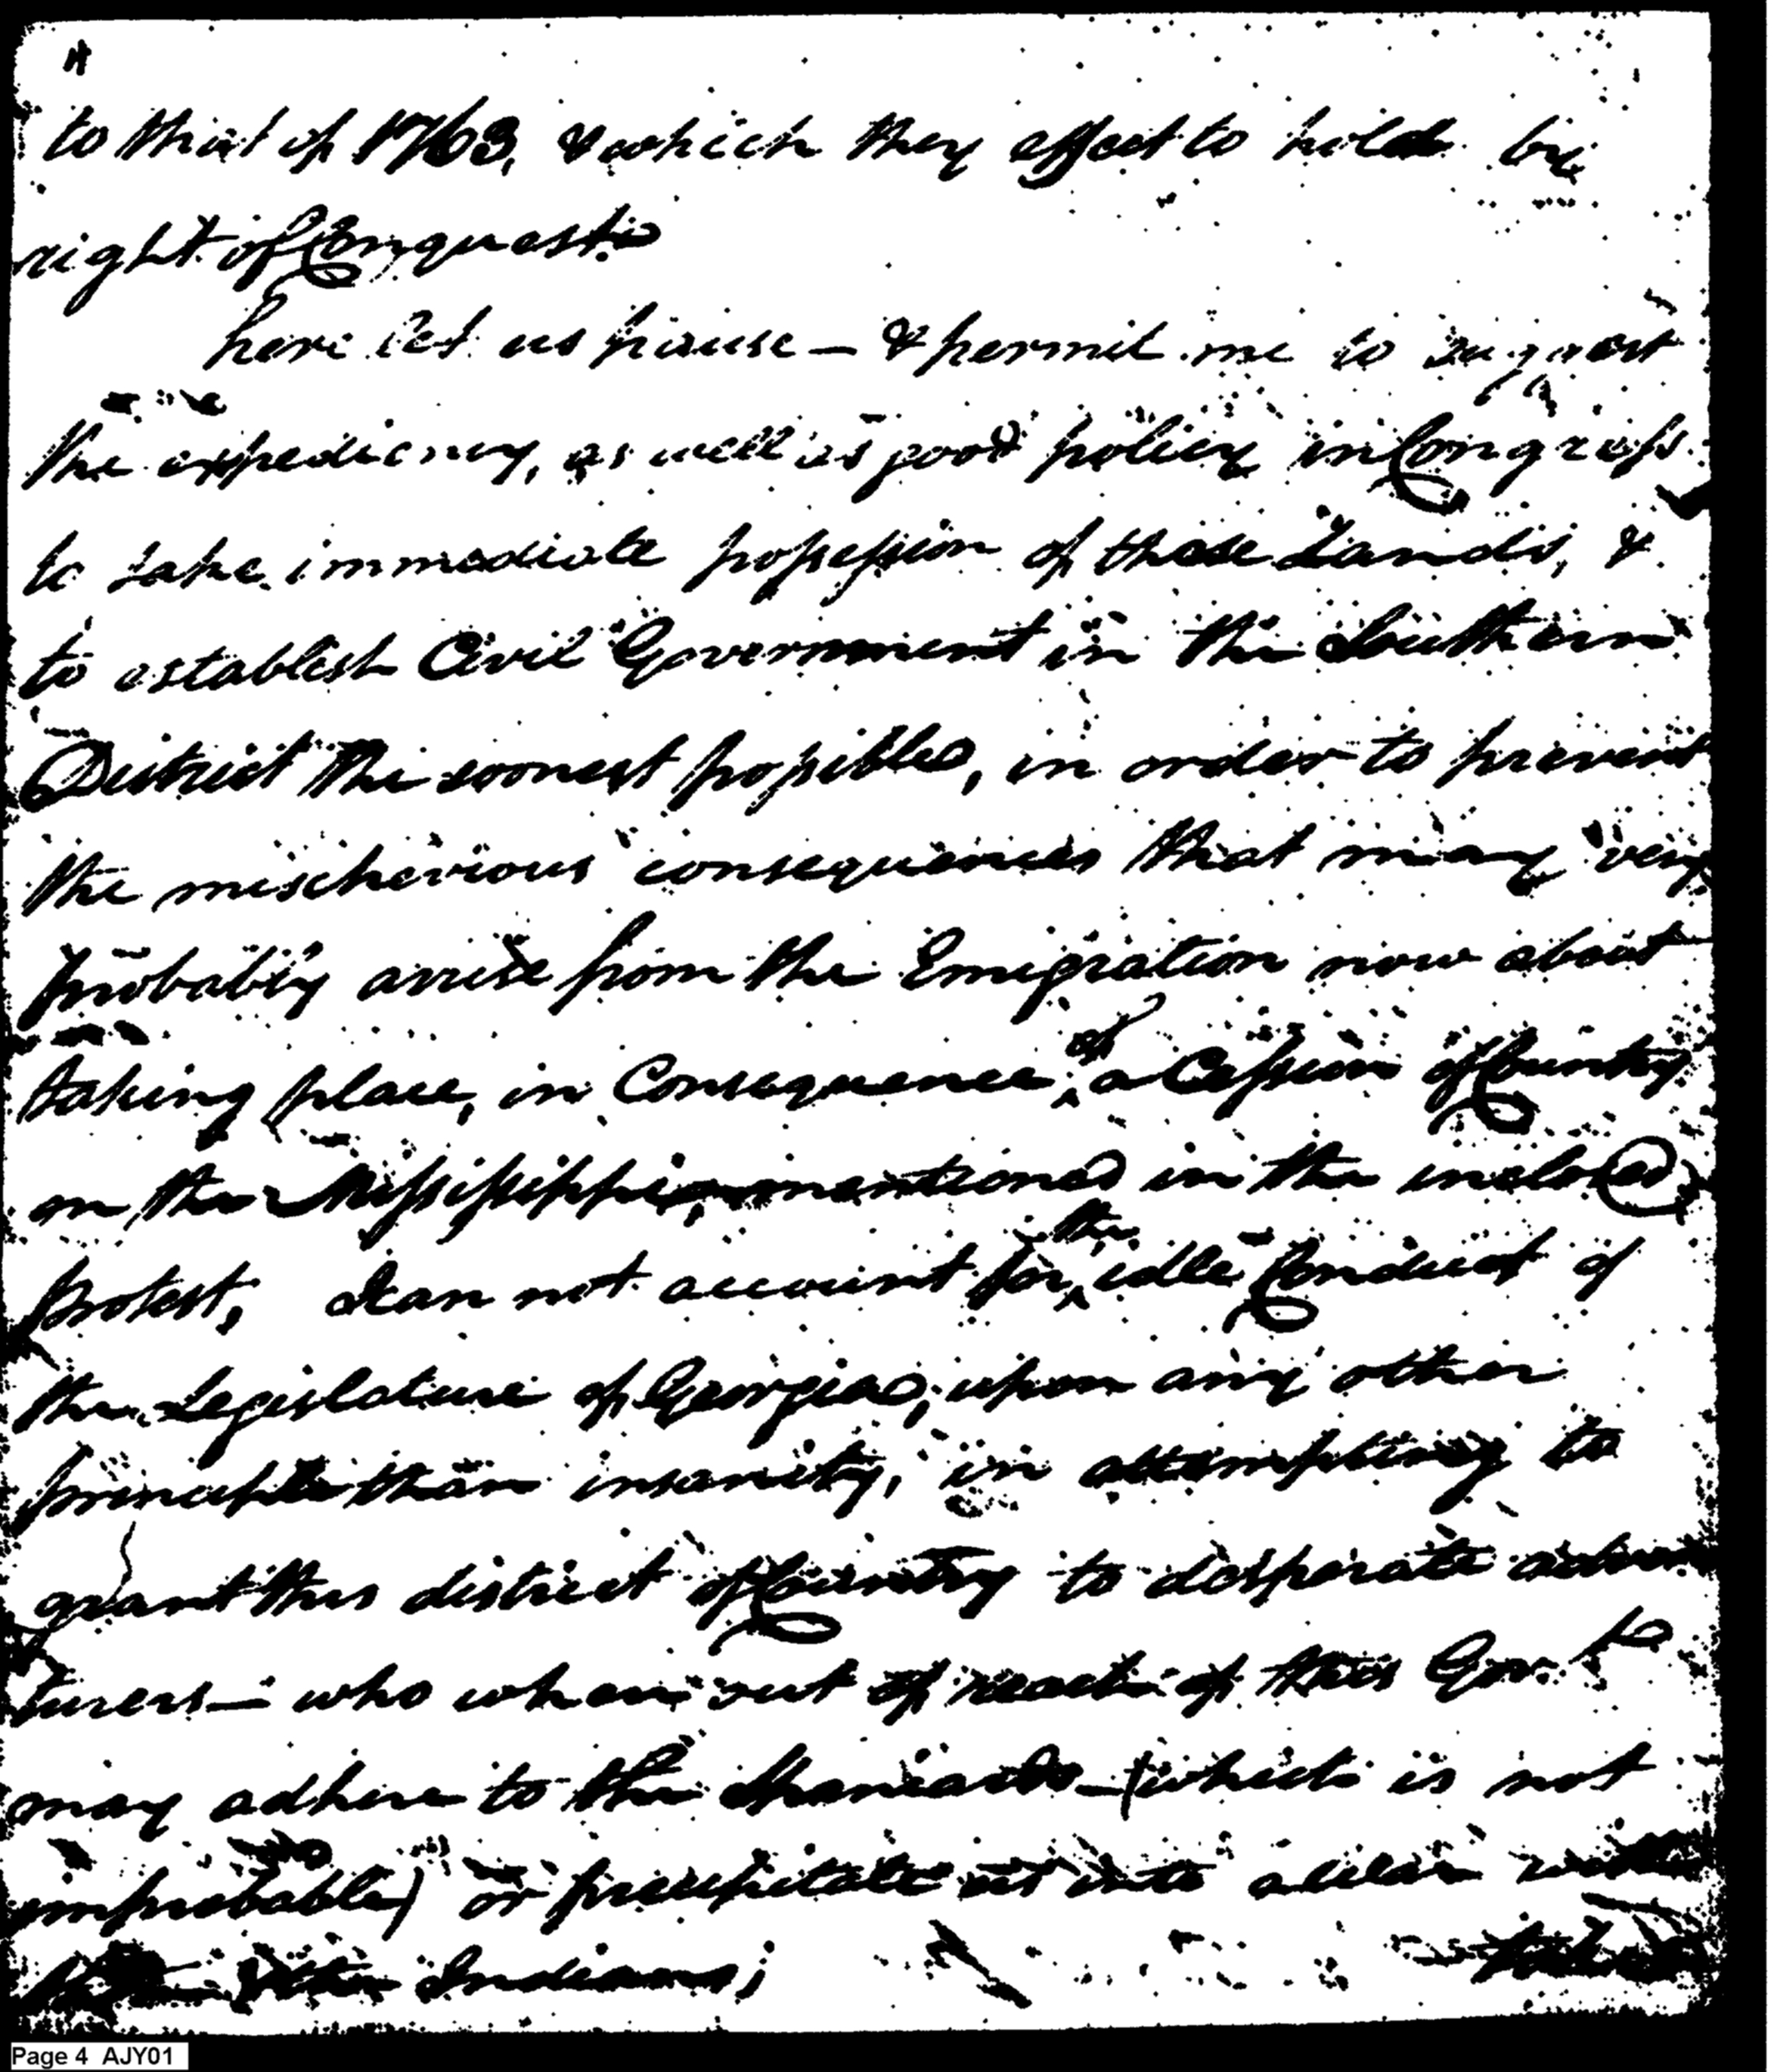 4
to that of 1763, & which they effect to hold by
right of Conquest.
here let us pause — & permit me to suggest
the expediency, as well as good policy in Congress
to take immediate possession of those Lands, &
to establish Civil Government in the Southern
District the soonest possible, in order to prevent
the mischevious consequences that may very
probably arrise from the Emigration now about
taking place, in Consequence of a Cession of Country
on the Mississippi, mentioned in the inclosed
Protest, I can not account for the idle Conduct of
the Legislature of Georgia, upon any other
principle than insanity, in attempting to
grant this district of Country to desperate adven
turers — who when out of reach of this Gov.t
may adhere to the Spaniards — (which is not
improbable) or precipitate us into a War with
Indians;
Page 4 AJY01